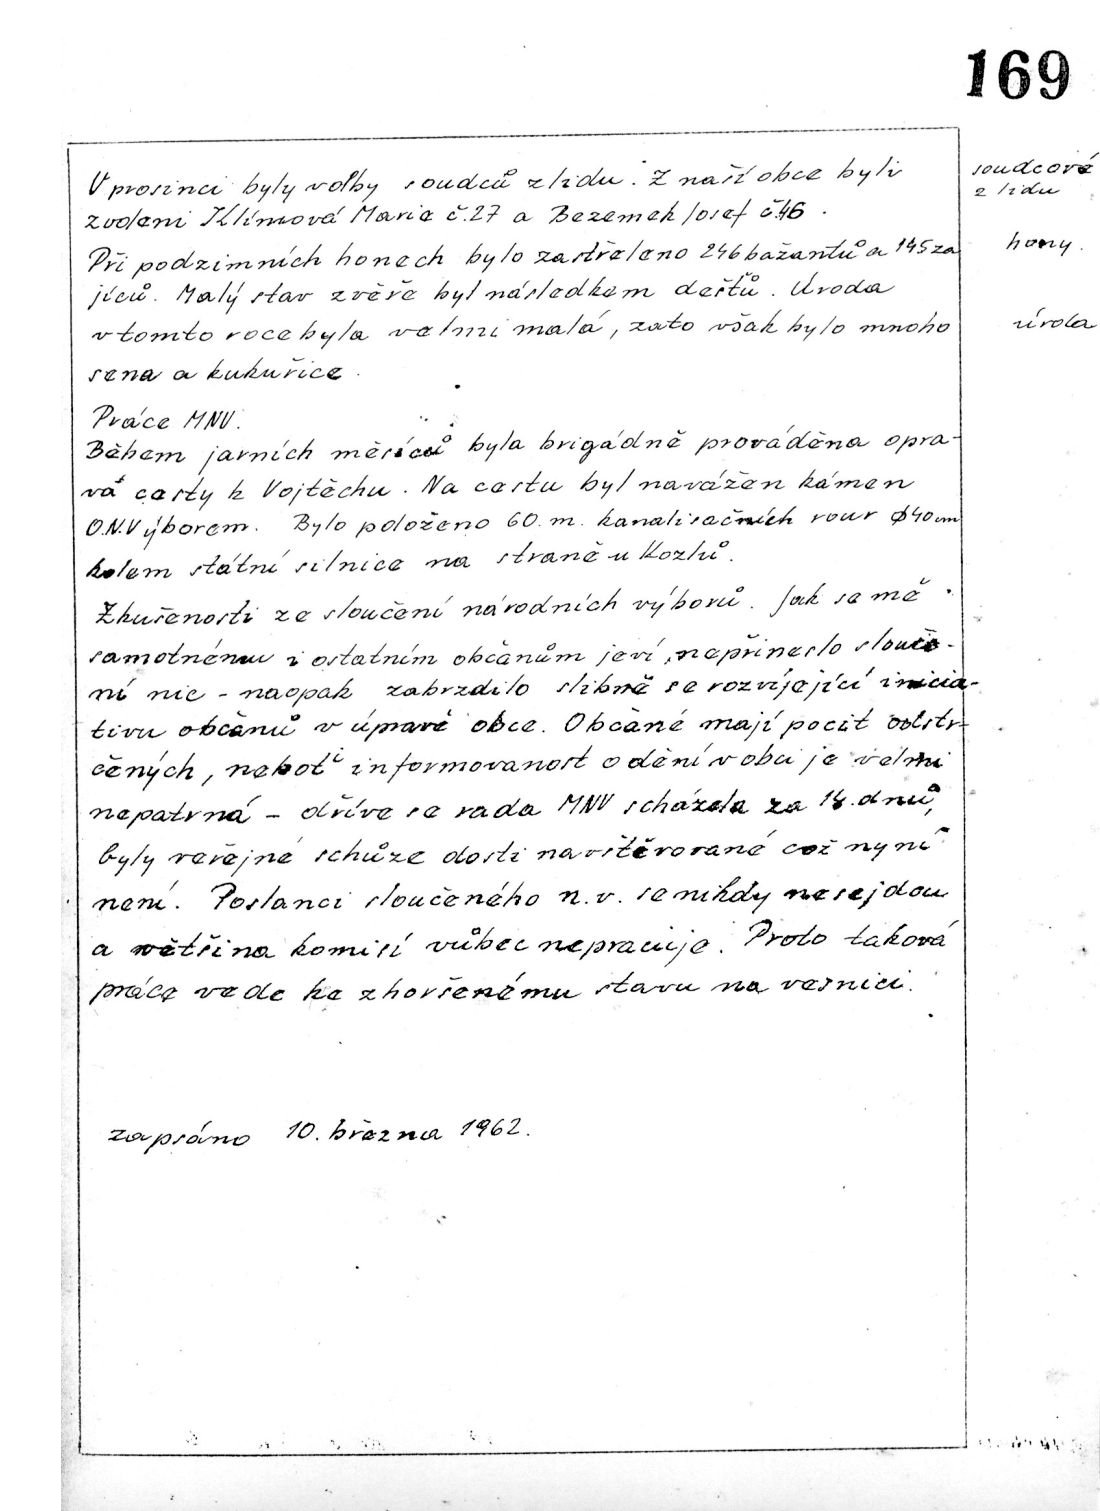 169
V prosinci byly volby soudců z lidu. Z naší obce byli
zvoleni Klímová Marie č.27 a Bezemek Josef č.46.
soudcové
z lidu
Při podzimních honech bylo zastřeleno 246 bažantů a 145 za
jíců. Malý stav zvěře byl následkem dešťů. Úroda
hony.
v tomto roce byla velmi malá, zato však bylo mnoho
sena a kukuřice.
úroda
Práce MNV.
Během jarních měsíců byla brigádně prováděna opra-
va cesty k Vojtěchu. Na cestu byl navážen kámen
O.N.Výborem. Bylo položeno 60. m. kanalisačních rour ø 40 cm
kolem státní silnice na straně u Kozlů.
Zkušenosti ze sloučení národních výborů. Jak se mě
samotnému i ostatním občanům jeví, nepřineslo slouče-
ní nic - naopak zabrzdilo slibně se rozvíjející inicia-
tivu občanů v úpravě obce. Občané mají pocit odstr-
čených, neboť informovanost o dění v obci je velmi
nepatrná - dříve se rada MNV scházela za 14. dnů,
byly veřejné schůze dosti navštěvované což nyní
není. Poslanci sloučeného n.v. se nikdy nesejdou
a většina komisí vůbec nepracuje. Proto taková
práce vede ke zhoršenému stavu na vesnici.
zapsáno 10. března 1962.